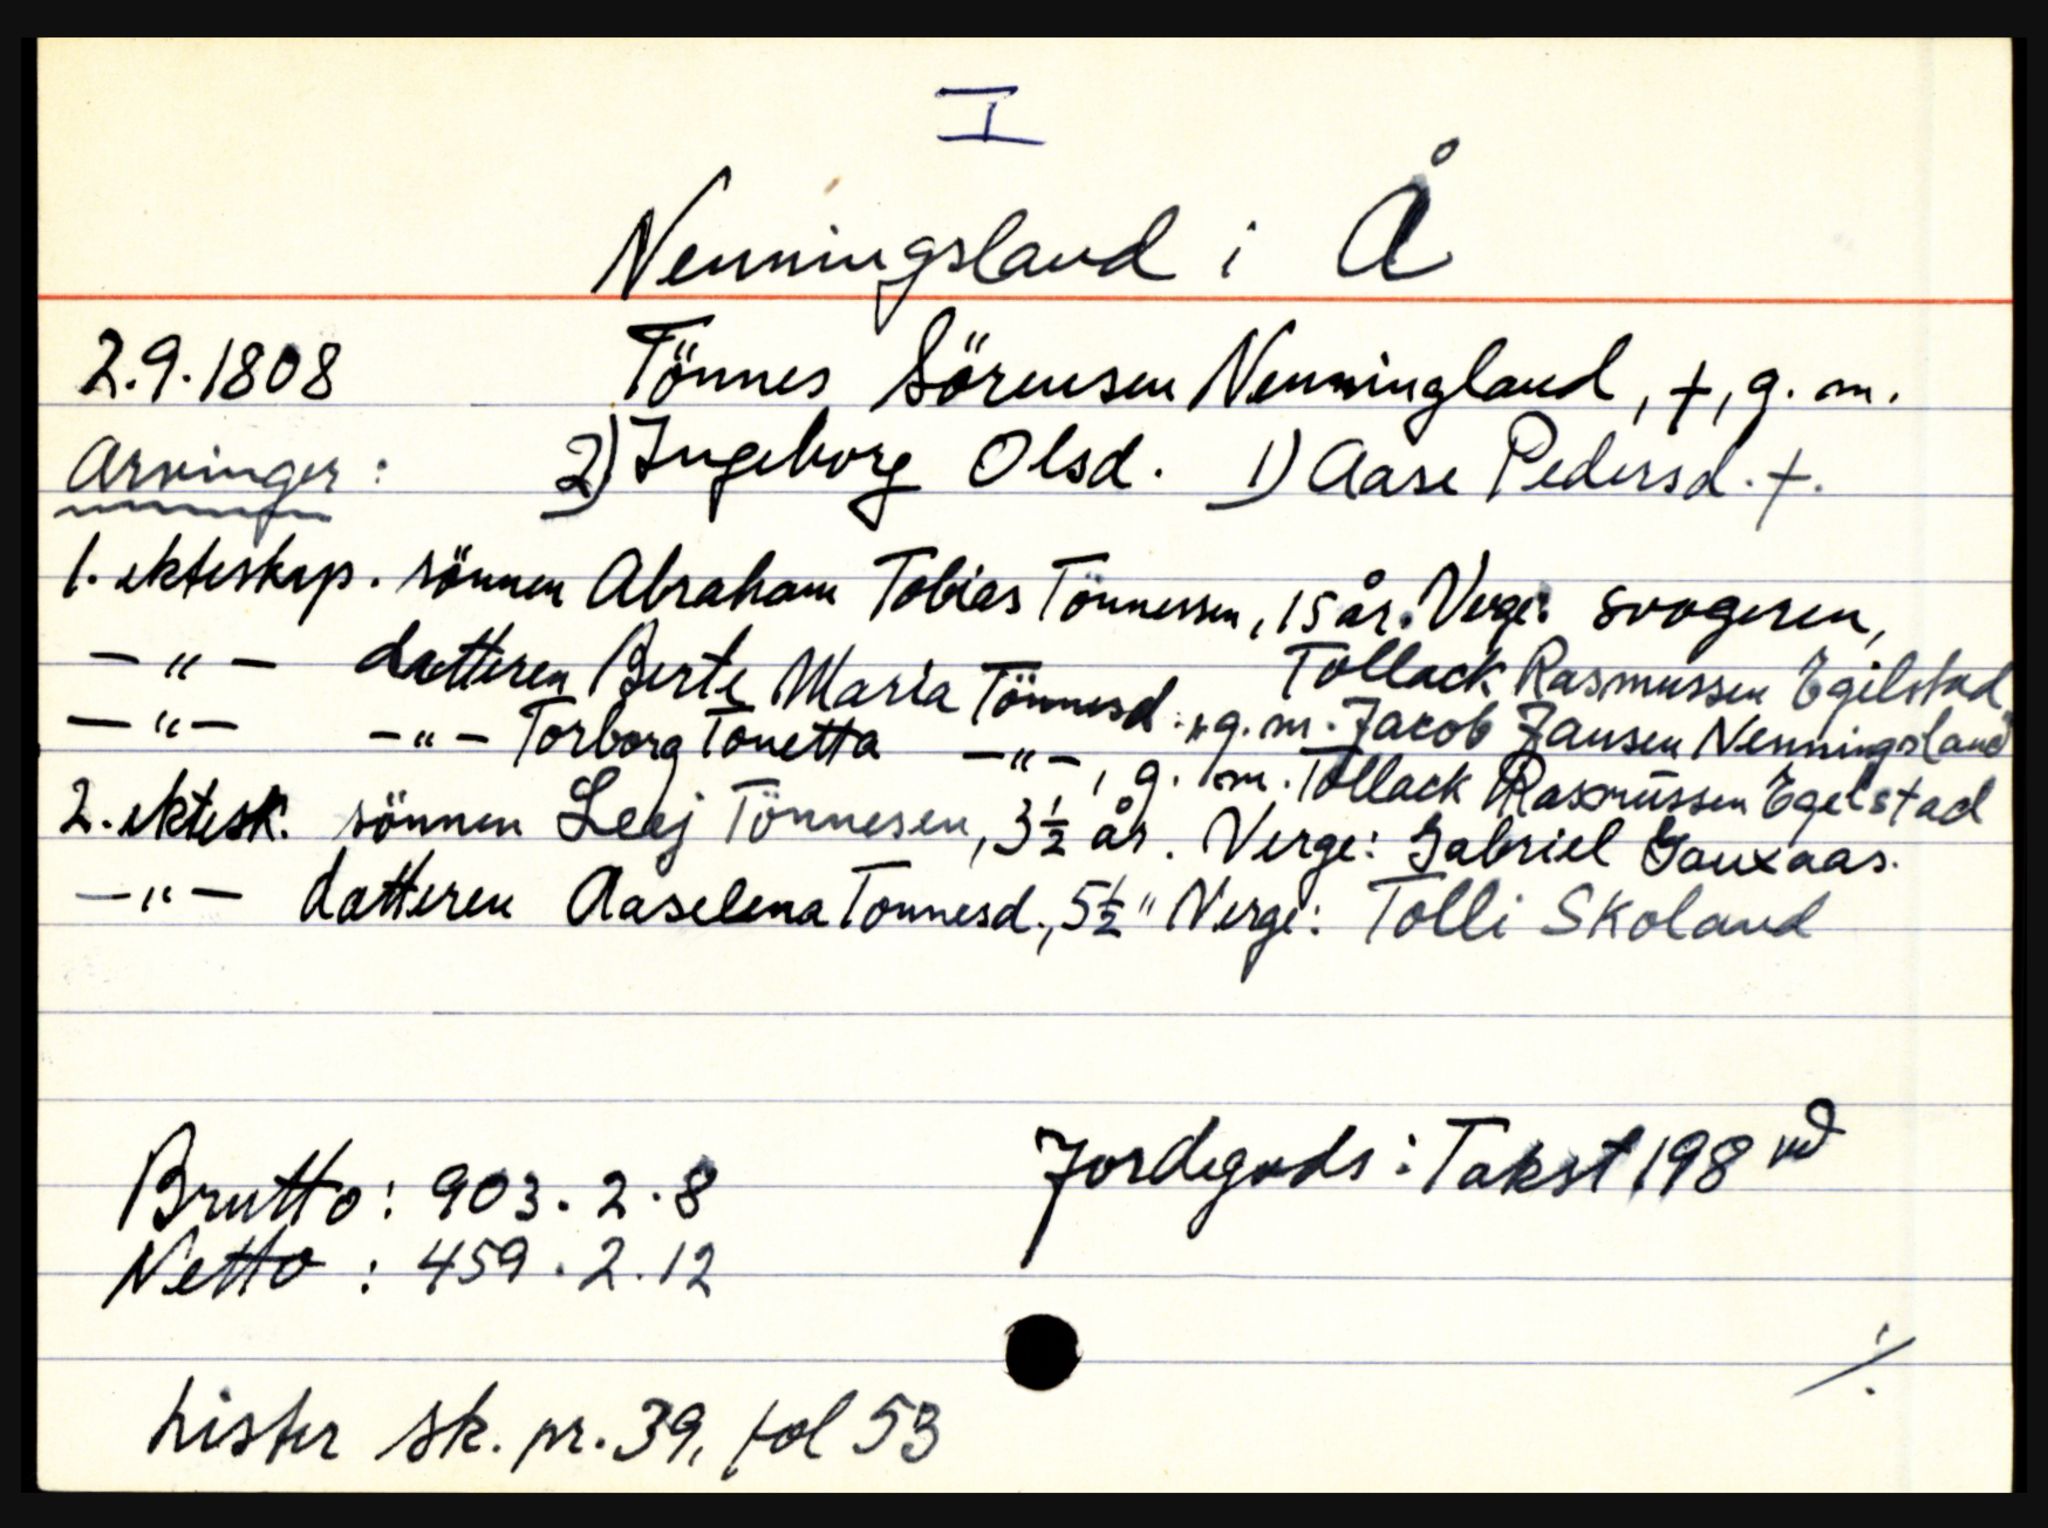 I
Nenningsland i Å
2.9.1808 Tönnes Sörensen Nenningland, +, g. m.
Arvinger: 2) Ingeborg Olsd. 1) Aase Pedersd. +.
1. ekteskap. sönnen Abraham Tobias Tönnessen, 15 år. Verge: svogeren,
Tollack Rasmussen Egilstad
-"- datteren Berte Maria Tönnesd., g. m. Jacob Jansen Nenningsland
-"- -"- Torborg Tonetta -"-, g. m. Tollack Rasmussen Egelstad
2. ektesk. sönnen Leej Tönnesen, 3½ år. Verge: Gabriel Gauxaas.
-"- datteren Aaselena Tonnesd., 5½ " Verge: Tolli Skoland
Brutto: 903. 2. 8 Jordegods: Takst 198 rd
Netto: 459. 2. 12
./.
Lister sk. pr. 39, fol 53